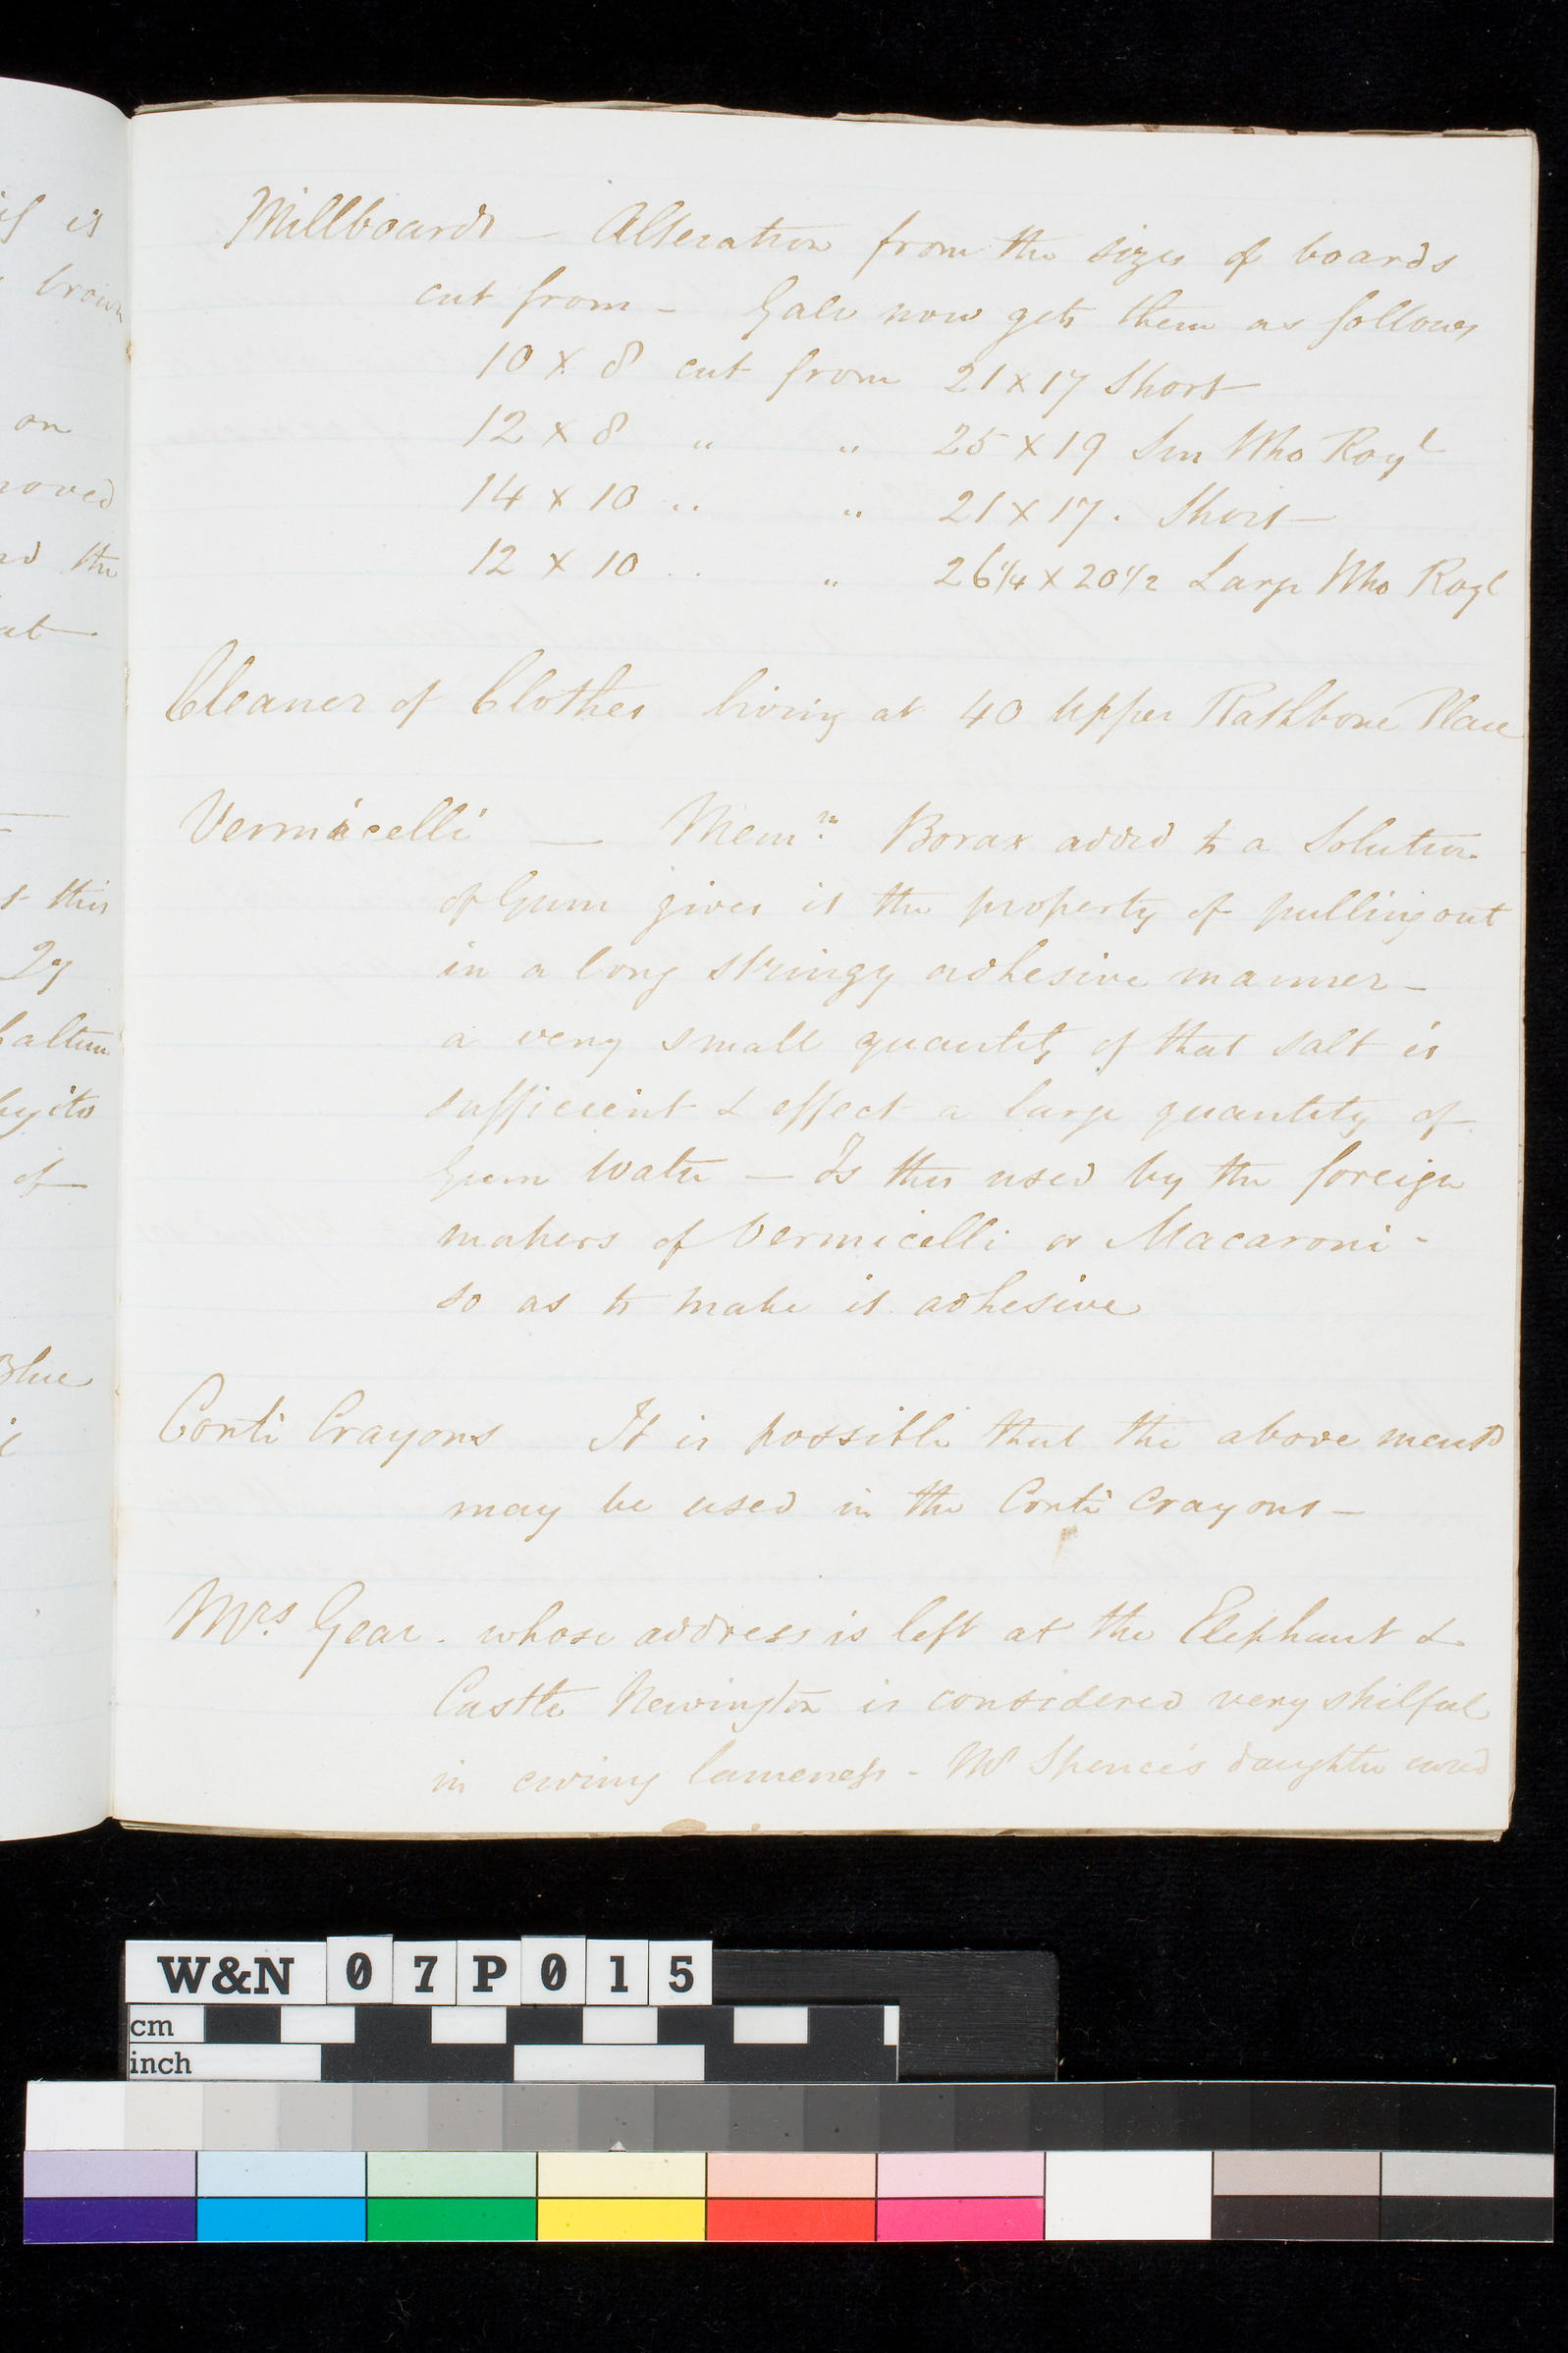 Millboards — Alteration from the sizes of boards
cut from — Gale now gets them as follows
10 x 8 cut from 21 x 17 Short
12 x 8 " " 25 x 19 Sm Who Royl
14 x 10 " " 21 x 17 . Short
12 x 10 " " 26 1/4 x 20 1/2 Large Who Royl
Cleaner of Clothes living at 40 Upper Rathbone Place
Vermicelli — Memm. Borax added to a Solution
of Gum gives it the property of pulling out
in a long stringy adhesive manner —
a very small quantity of that salt is
sufficient to effect a large quantity of
Gum Water — Is this used by the foreign
makers of Vermicelli or Macaroni -
so as to make it adhesive
Conti Crayons It is possible that the above mentd
may be used in the Conti Crayons —
Mrs. Gear . whose address is left at the Elephant &
Castle Newington is considered very skilful
in curing lameness - Mr Spence's daughter cured
is
brown
on
the
at
this
its
of
Blue
W&N 07P015
cm
inch